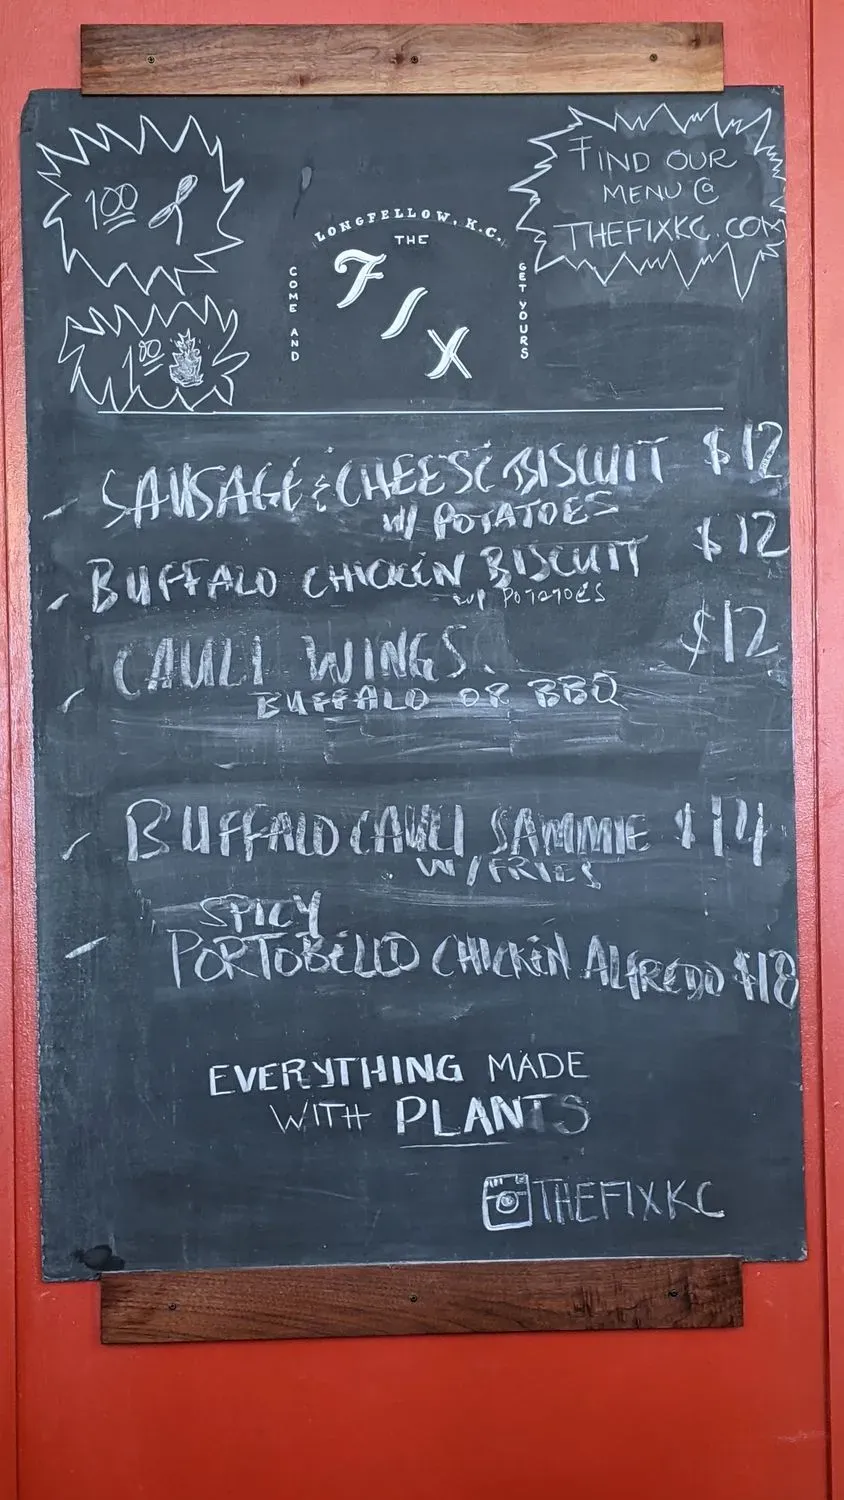 100
100
LONGFELLOW, K.C.
THE
FIX
COME AND
GET YOURS
FIND OUR
MENU @
THEFIXKC.COM
SAUSAGE & CHEESE BISCUIT $12
W/ POTATOES
BUFFALO CHICKEN BISCUIT $12
w/ POTATOES
CAULI WINGS. $12
BUFFALO OR BBQ
BUFFALO CAULI SAMMIE $14
W/FRIES
SPICY
PORTOBELLO CHICKEN ALFREDO $18
EVERYTHING MADE
WITH PLANTS
THEFIXKC